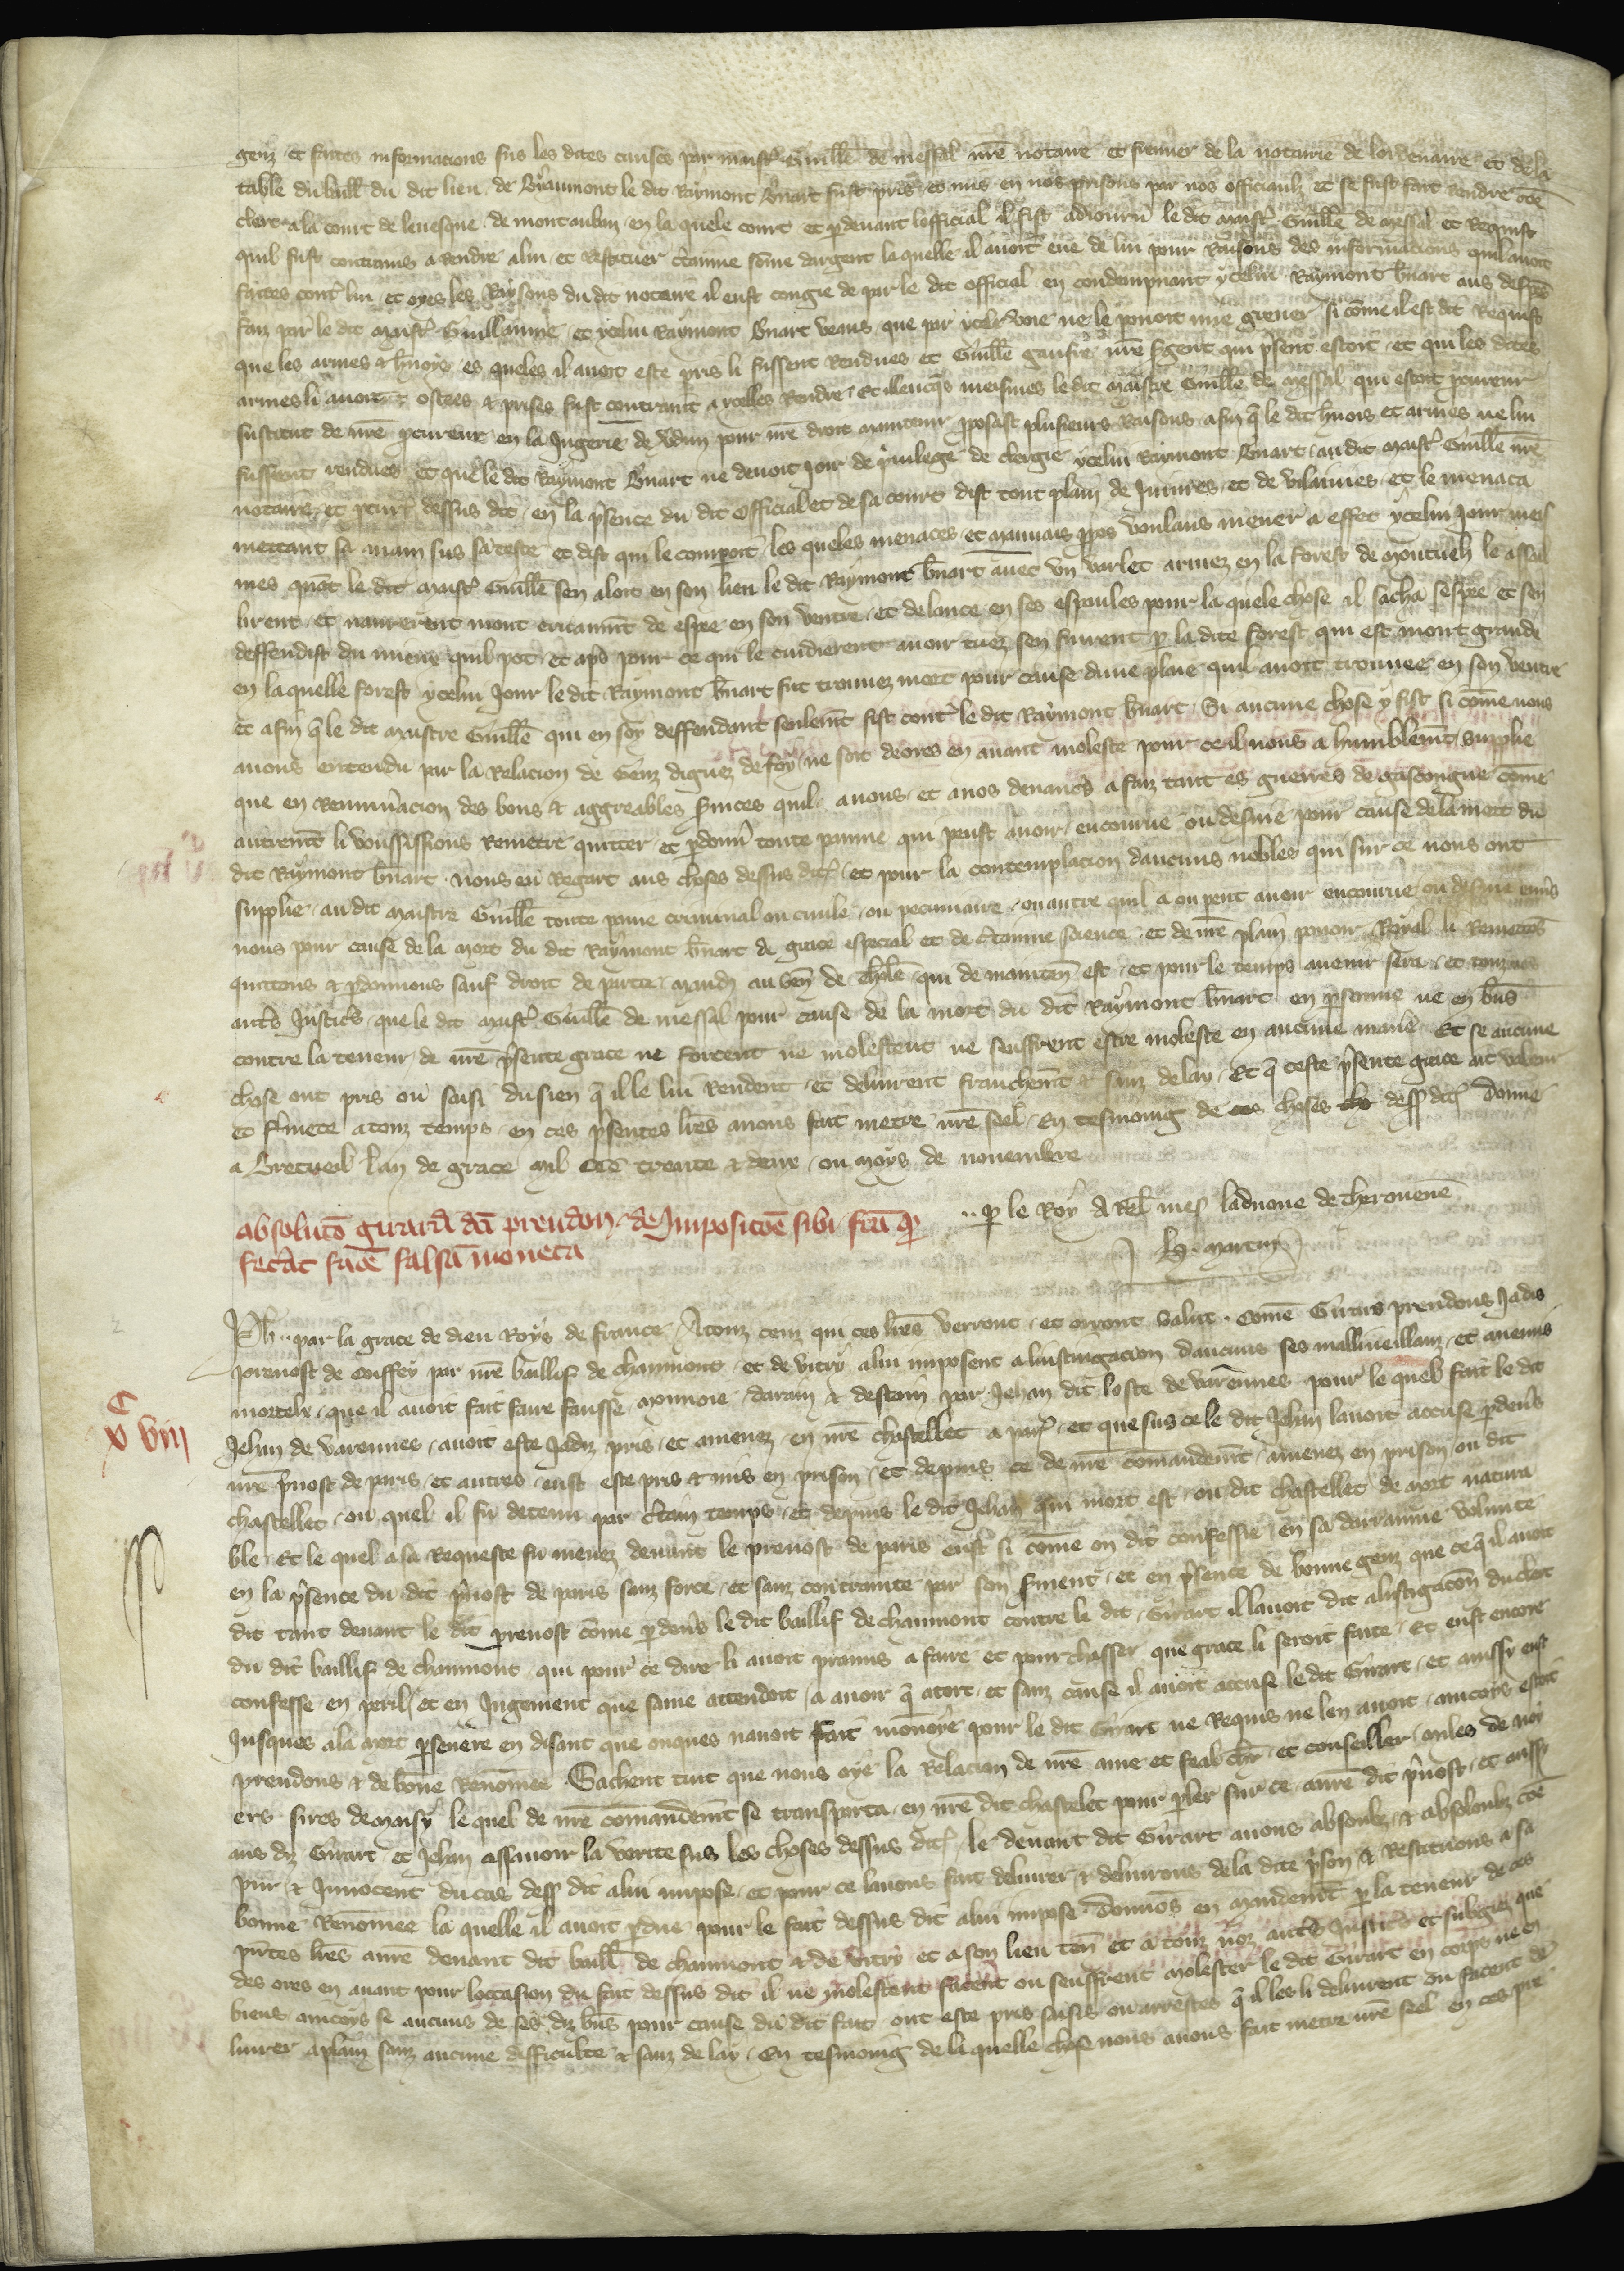 genz et faites informacions sus les dites causes par maistr Guille de messal nre notaire et fermier de la notairie de lordenaire et de la
table du baill du dit lieu de Byaumont le dit Raymont Bnart fust pris et mis en nos prisons par nos officiaulz et se fust fait rendre cõe
clerc a la court de levesque de montauban en la quele court et pdevant lofficial il fist adiourn le dit maistr Guille de messal et requist
quil fust contrains a rendre a lui et restituer ctainne sõme dargent la quelle il avoit eue de lui pour raisons des informacions quil avoit
faites contr lui et oyes les raysons du dit notaire il eust congie de par le dit official en condempnant ycelui Raymont bnart aus despẽs
faiz par le dit maistr Guillaume et ycelui Raymont bnart veans que par ycele voie ne le pouoit mie grever si cõme il est dit requist
que les armes et hnoys es queles il avoit este pris li fussent rendues et Guille gaufre nre sgent qui psent estoit et qui les dites
armes li avoit ostees et prises fust contraint a ycelles rendre Et illecqs meismes le dit maistre Guille de messal qui estoit pcureur
sustitut de nre pcureur en la Jugerie de Vdun pour nre droit maintenir pposast plusieurs raisons afin q le dit hnois et armes ne lui
fussent rendues et que le dit Raymont Bnart ne devoit joir de pvilege de clergie ycelui Raymont Bnart au dit maistr Guille nre
notaire et pcur dessus dit en la psence du dit official et de sa court dist tout plain de Iniures et de vilainies et le menaca
mettant sa main sus sa teste et dist qui le comperoit les queles menaces et mauvais ppos voulans mener a effet ycelui jour meis
mes quãt le dit maistr Guille sen aloit en son lieu le dit Raymont bnart avec un varlet armez en la forest de montueh le assal
lirent et navrerent mout ... de espee en son ventre et de lance en ses espaules pour la quele chose il sacha sespee et sen
deffendist du mieux quil pot et aps pour ce qui le cuidierent avoir tuez sen fuirent p la dite forest qui est mout grande
en laquelle forest ycelui jour le dit Raymont bnart fut trouvez mort pour cause dune plaie quil avoit trouvee en son ventre
et afin q le dit maistre Guille qui en soy deffendant seulemt fist contr le dit Raymont bnart Si aucune chose y fist si cõme nous
avons entendu par la relacion de genz dignez de foy ne soit deores en avant moleste pour ce il nous a humblemt supplie
que en remuneracion des bons et aggreables svices quil a nous et a nos devancs a faiz tant es guerres de gascongne cõme
autremt li vousissions remetre quitter et pdonn toute painne qui peust avoir encourue ou desme pour cause de la mort du
dit Raymont bnart Nous en regart aus choses dessus dites et pour la contemplacion daucuns nobles qui sur ce nous ont
supplie au dit maistre Guille toute paine criminal ou civile ou pecuniaire ou autre quil a ou peut avoir encourue ou desme envs
nous pour cause de la mort du dit Raymont bnart de grace especial et de ctainne science et de nre plain pouoir royal li remetõs
quittons et pdonnons sauf droit de partie Mandõ au sen de tholose qui de mainten est et pour le temps avenir sera et touz nos
autrs Justics que le dit maistr Guille de messal pour cause de la mort du dit Raymont bnart en psonne ne en biens
contre la teneur de nre psente grace ne forcent ne molestent ne seuffrent estre moleste en aucune manie Et se aucune
chose ont pris ou saisi du sien q il le lui rendent et delivrent franchemt et sanz delay Et q ceste psente grace ait valeur
et fmete a touz temps en ces psentes lres avons fait metre nre seel En tesmoing de ces choses dessus dites Donne
a Bretueil lan de grace mil ccc trente et deux ou moys de novembre
p le Roy a Rel mess laduoue de therouene
H. martin
absoluto girardi dci prendon de Impositione sibi fca q
fecat fiẽ falsã moneta
Ph par la grace de dieu Roys de france A touz ceuz qui ces lres verront et orront salut Comẽ Girars prendons jadis
prevost de Couffey par nre baillif de chaumont et de vitry a lui imposent a linstingacion daucuns ses mallueillanz et anemis
mortelx que il avoit fait faire fausse monnoie darain et destain par Jehan dit loste de varennes pour le quel fait le dit
Jehan de varennes avoit este jadiz pris et amenez en nre chastellet a paris et que sus ce le dit Jehan lavoit accuse pdevs
nre pvost de paris et autres eust este pris et mis en prison et depuis ce de nre cõmandemt amenez en prison ou dit
chastellet ou quel il fu detenu par ctain temps et depuis le dit Jehan qui mort est ou dit chastellet de mort natura
ble et le quel a sa requeste fu menez devant le prevost de paris eust si cõme on dit confesse en sa darrainne volunte
en la psence du dit pvost de paris sanz force et sanz contrainte par son sment et en psence de bonne genz que ce q il avoit
dit tant devant le dit prevost cõme pdevs le dit baillif de chaumont contre le dit Girart il lavoit dit a linstigacõn du clerc
du dit baillif de chaumont qui pour ce dire li avoit promis a faire et pourchasser que grace li seroit faite Et eust encore
confesse en peril et en Jugement que same attendoit a avoir q a tort et sanz cause il avoit accuse le dit Girart et aussy eust
Jusques a la mort psevere en disant que onques navoit fait monnoie pour le dit Girart ne requis ne len avoit aincois estoit
prendons et de bõne renõmee Sachent tuit que nous oye la relacion de nre ame et feal chr et conseiller miles de noy
ers sires de maisy le quel de nre cõmandemt se transporta en nre dit chastelet pour pler sur ce a nre dit pvost et aussy
aus diz Girart et Jehan assavoir la verite sus les choses dessus dites le devant dit Girart avons absoulz et absolonz cõe
pur et Innocent du cas dess dit a lui impose et pour ce lavons fait delivrer et delivrons de la dite pson et restituons a sa
bonne renõmee la quelle il avoit pdue pour le fait dessus dit a lui impose Donnõs en mandemt p la teneur de ces
pntes lres a nre devant dit baill de chaumont et de vitry et a son lieu ten et a touz noz autrs Justics et subgiez que
des ores en avant pour loccasion du fait dessus dit il ne molestent facent ou seuffrent molester le dit Girart en corps ne en
biens aincoys se aucuns de ses diz biens pour cause du dit fait ont este pris saisis ou arrestes q il les li delivrent ou facent de
livrer a plain sanz aucune difficulte et sanz delay En tesmoing de la quelle chose nous avons fait metre nre seel en ces pnt
c
v viii